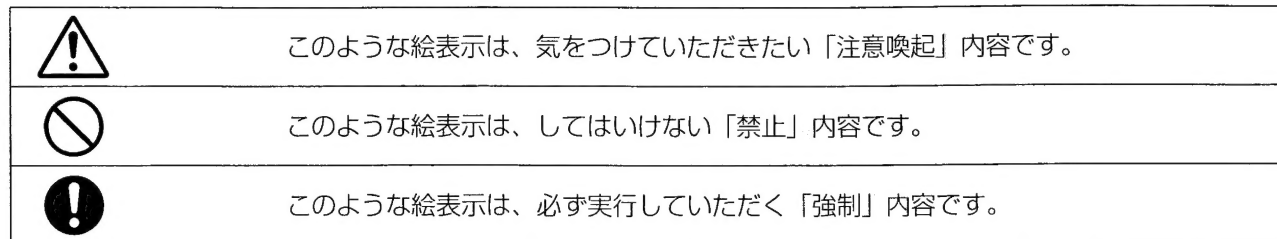 このような絵表示は、気をつけていただきたい「注意喚起」内容です。
このような絵表示は、してはいけない「禁止」内容です。
このような絵表示は、必ず実行していただく「強制」内容です。